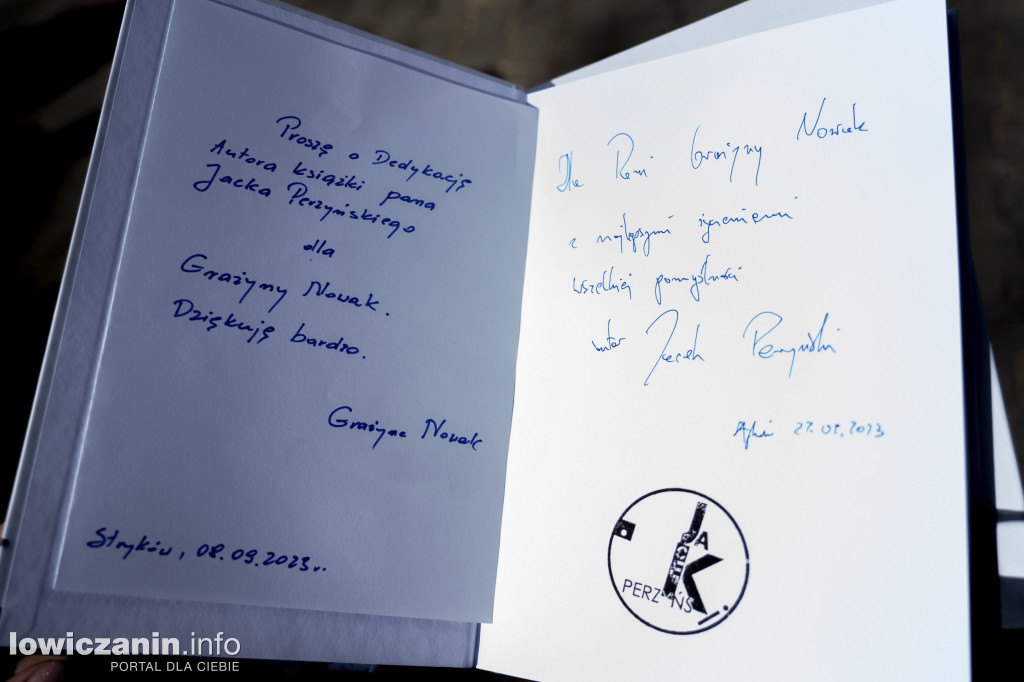 Proszę o Dedykację
Autora książki pana
Jacka Perzyńskiego
dla
Grażyny Nowak.
Dziękuję bardzo.
Grażyna Nowak
Stryków, 08.09.2023r.
Dla Pani Grażyny Nowak
z najlepszymi życzeniami
wszelkiej pomyślności
autor Jacek Perzyński
2023
PERZ NS
lowiczanin.info
PORTAL DLA CIEBIE